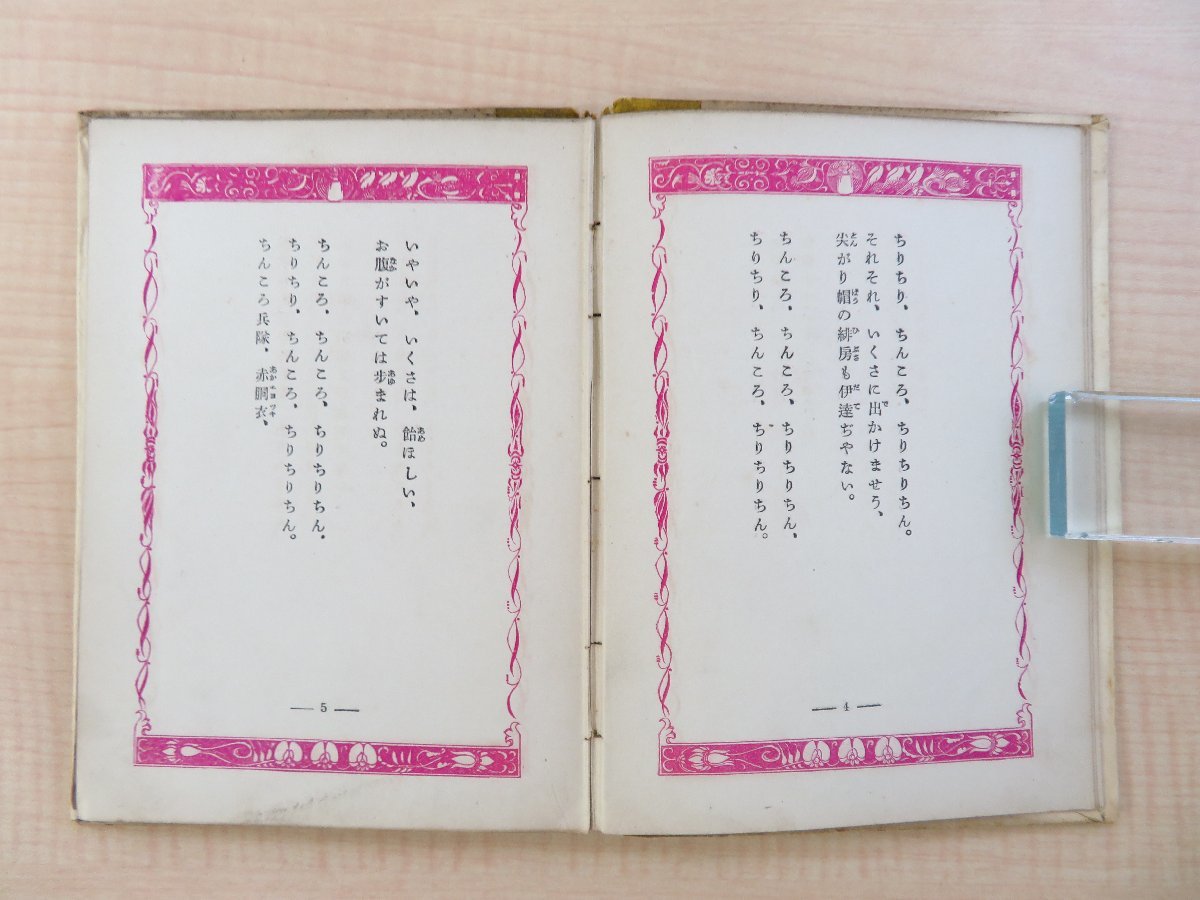 ちりちり、ちんころ、ちりちりちん。
それそれ、いくさに出かけませう、
尖がり帽の緋房も伊達ぢやない。
ちんころ、ちんころ、ちりちりちん、
ちりちり、ちんころ、ちりちりちん。
— 4 —
いやいや、いくさは、飴ほしい、
お腹がすいては歩まれぬ。
ちんころ、ちんころ、ちりちりちん.
ちりちり、ちんころ、ちりちりちん。
ちんころ兵隊、赤胴衣、
— 5 —